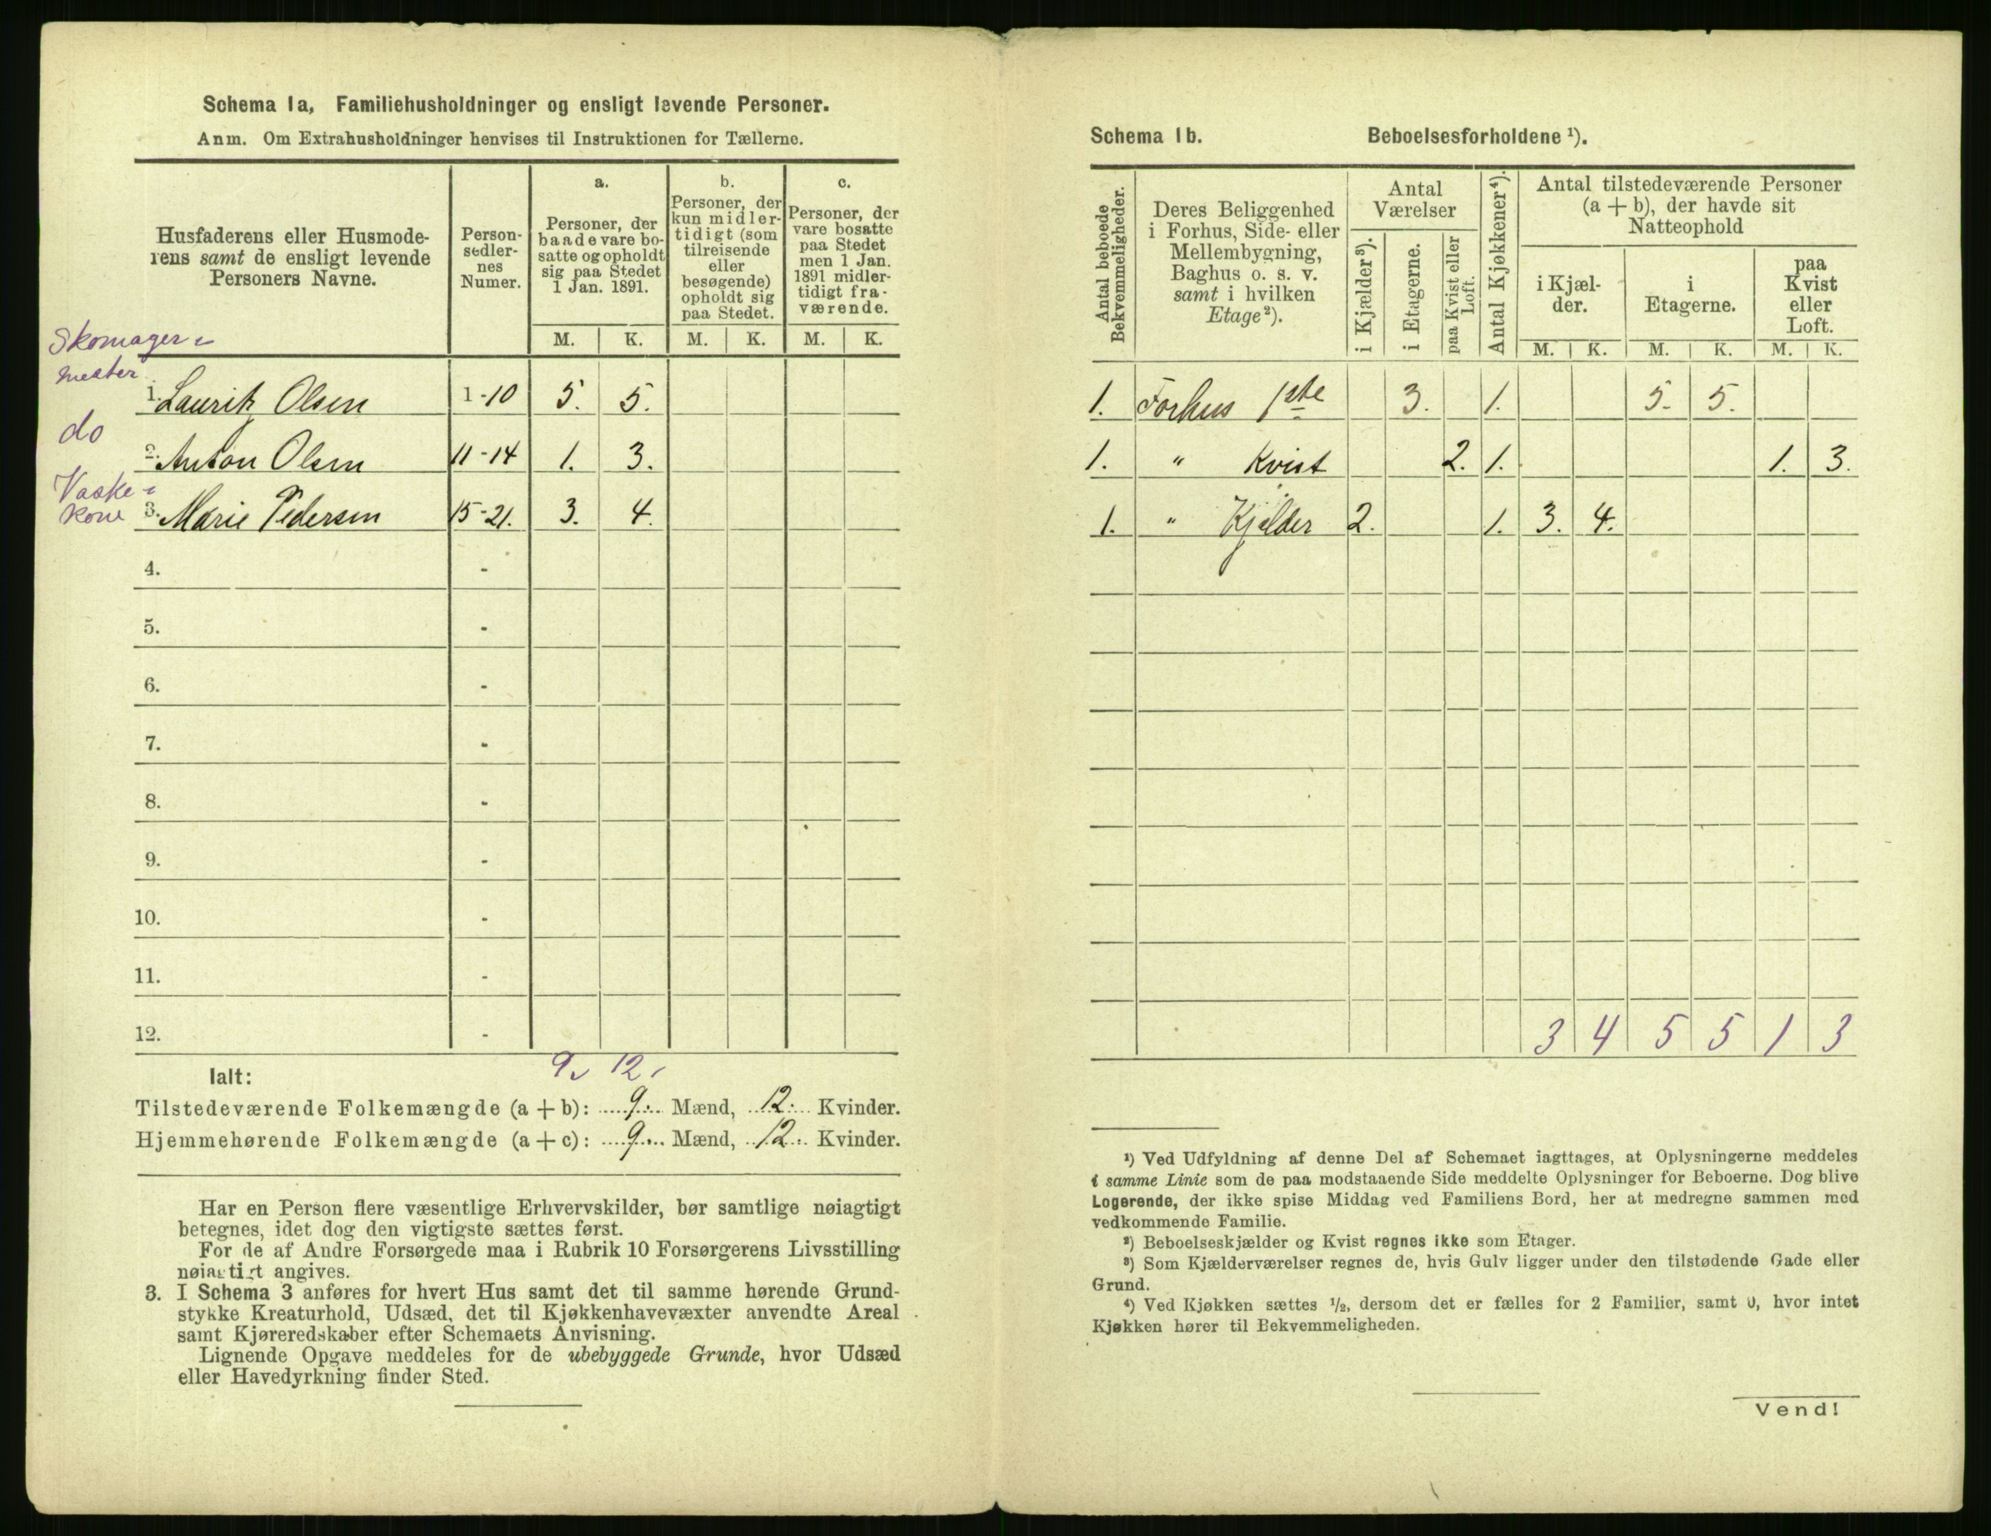 Schema 1a, Familiehusholdninger og ensligt levende Personer.
Anm. Om Extrahusholdninger henvises til Instruktionen for Tællerne.
Husfaderens eller Husmode-
rens samt de ensligt levende
Personers Navne.
Person-
sedler-
nes
Numer.
a.
Personer, der
baade vare bo-
satte og opholdt
sig paa Stedet
1 Jan. 1891.
b.
Personer, der
kun midler-
tidigt (som
tilreisende
eller
besøgende)
opholdt sig
paa Stedet.
c.
Personer, der
vare bosatte
paa Stedet
men 1 Jan.
1891 midler-
tidigt fra-
værende.
M. K. M. K. M. K.
Skomager-
mester
1. Lauritz Olsen 1-10 5. 5.
do
2. Anton Olsen 11-14 1. 3.
Vaske-
kone
3. Marie Pedersen 15-21. 3. 4.
4. -
5. -
6. -
7. -
8. -
9. -
10. -
11. -
12. -
9 12
Ialt:
Tilstedeværende Folkemængde (a + b): 9. Mænd, 12. Kvinder.
Hjemmehørende Folkemængde (a + c): 9. Mænd, 12. Kvinder.
Har en Person flere væsentlige Erhvervskilder, bør samtlige nøiagtigt
betegnes, idet dog den vigtigste sættes først.
For de af Andre Forsørgede maa i Rubrik 10 Forsørgerens Livsstilling
nøiagtigt angives.
3. I Schema 3 anføres for hvert Hus samt det til samme hørende Grund-
stykke Kreaturhold, Udsæd, det til Kjøkkenhavevæxter anvendte Areal
samt Kjøreredskaber efter Schemaets Anvisning.
Lignende Opgave meddeles for de ubebyggede Grunde, hvor Udsæd
eller Havedyrkning finder Sted.
Schema 1b. Beboelsesforholdene ¹).
Antal beboede
Bekvemmeligheder.
Deres Beliggenhed
i Forhus, Side- eller
Mellembygning,
Baghus o. s. v.
samt i hvilken
Etage²).
Antal
Værelser
i Kjælder³).
i Etagerne.
paa Kvist eller
Loft.
Antal Kjøkkener⁴).
Antal tilstedeværende Personer
(a + b), der havde sit
Natteophold
i Kjæl-
der.
i
Etagerne.
paa
Kvist
eller
Loft.
M. K. M. K. M. K.
1. Forhus 1ste 3. 1. 5. 5.
1. " Kvist 2. 1. 1. 3.
1. " Kjelder 2. 1. 3. 4.
3 4 5 5 1 3
¹) Ved Udfyldning af denne Del af Schemaet iagttages, at Oplysningerne meddeles
i samme Linie som de paa modstaaende Side meddelte Oplysninger for Beboerne. Dog blive
Logerende, der ikke spise Middag ved Familiens Bord, her at medregne sammen med
vedkommende Familie.
²) Beboelseskjælder og Kvist regnes ikke som Etager.
³) Som Kjælderværelser regnes de, hvis Gulv ligger under den tilstødende Gade eller
Grund.
⁴) Ved Kjøkken sættes ½, dersom det er fælles for 2 Familier, samt 0, hvor intet
Kjøkken hører til Bekvemmeligheden.
Vend!